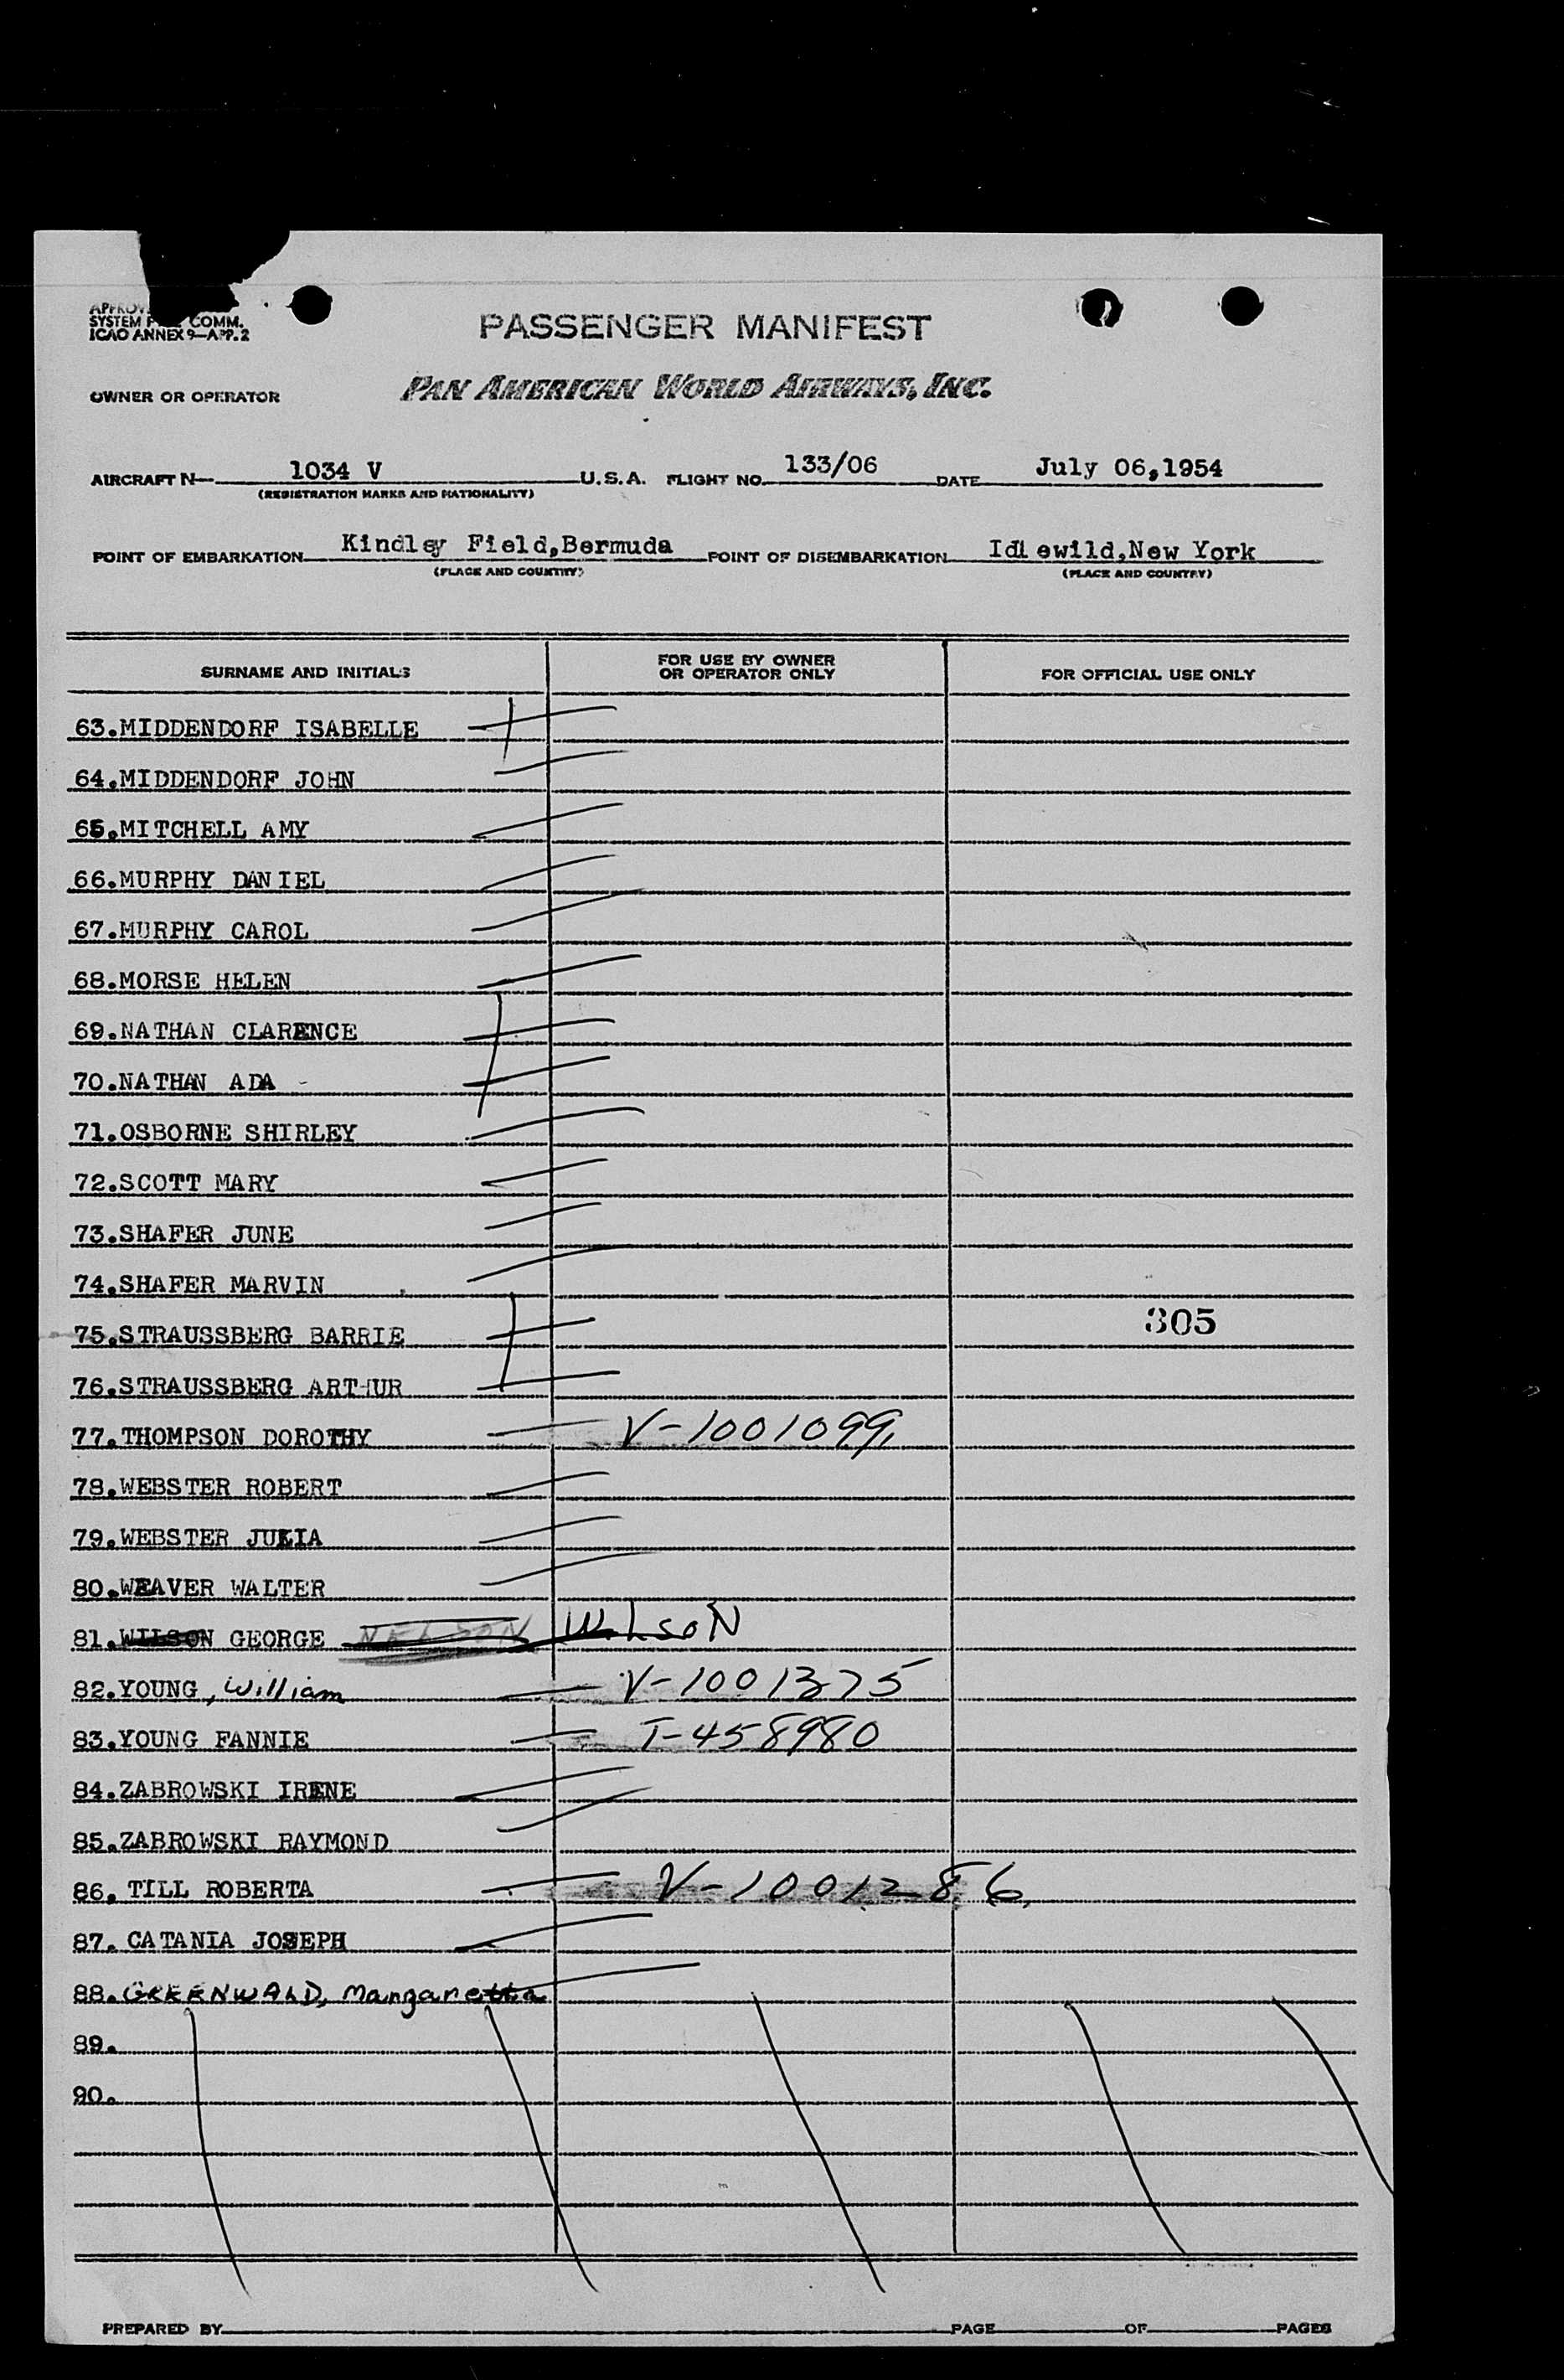 SYSTEM COMM.
ICAO ANNEX 9—APP. 2
PASSENGER MANIFEST
OWNER OR OPERATOR PAN AMERICAN WORLD AIRWAYS, INC.
AIRCRAFT N— 1034 V U.S.A. FLIGHT NO. 133/06 DATE July 06,1954
(REGISTRATION MARKS AND NATIONALITY)
POINT OF EMBARKATION Kindley Field,Bermuda POINT OF DISEMBARKATION Idlewild,New York
(PLACE AND COUNTRY) (PLACE AND COUNTRY)
SURNAME AND INITIALS FOR USE BY OWNER OR OPERATOR ONLY FOR OFFICIAL USE ONLY
63.MIDDENDORF ISABELLE
64.MIDDENDORF JOHN
65.MITCHELL AMY
66.MURPHY DANIEL
67.MURPHY CAROL
68.MORSE HELEN
69.NATHAN CLARENCE
70.NATHAN ADA -
71.OSBORNE SHIRLEY
72.SCOTT MARY
73.SHAFER JUNE
74.SHAFER MARVIN
75.STRAUSSBERG BARRIE 305
76.STRAUSSBERG ARTHUR
77.THOMPSON DOROTHY V-1001099
78.WEBSTER ROBERT
79.WEBSTER JULIA
80.WEAVER WALTER
81.WILSON GEORGE NELSON WILSON
82.YOUNG, William V-1001375
83.YOUNG FANNIE T-458980
84.ZABROWSKI IRENE
85.ZABROWSKI RAYMOND
86. TILL ROBERTA V-1001286
87. CATANIA JOSEPH
88. GREENWALD, Manganetta
89.
90.
PREPARED BY PAGE OF PAGES